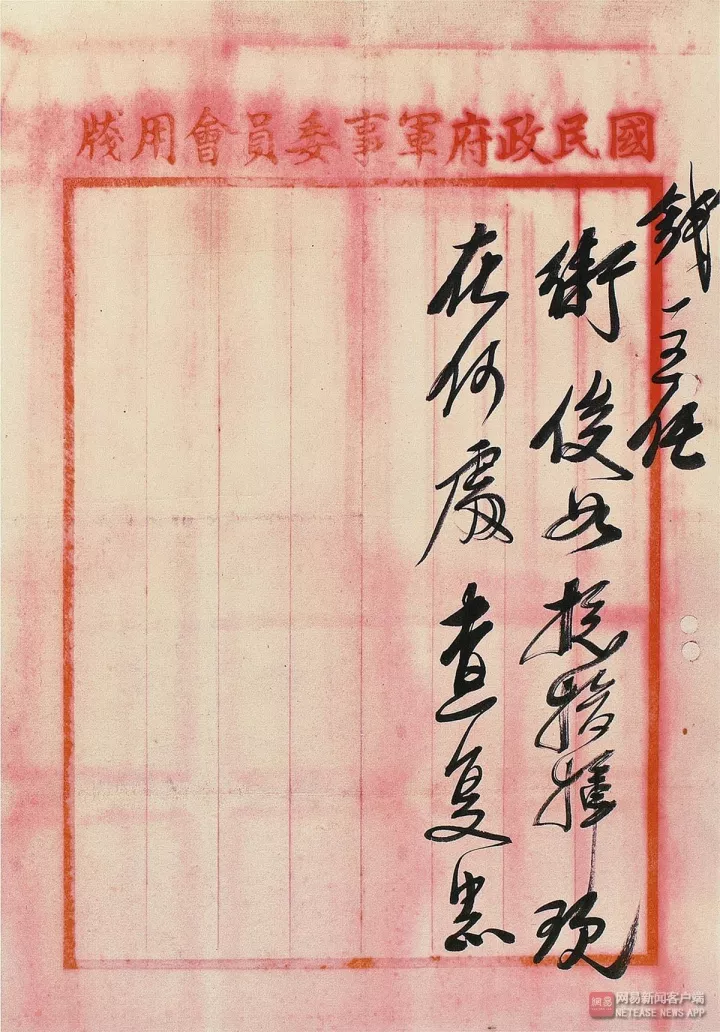 國民政府軍事委員會用牋
錢主任
衛俊如總指揮現
在何處查复中正
網易
网易新闻客户端
NETEASE NEWS APP